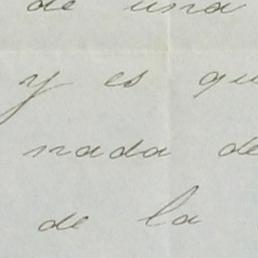 de una
y es qu
nada de
de la